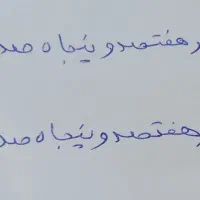 هفتصد و پنجاه صد
هفتصد و پنجاه صد